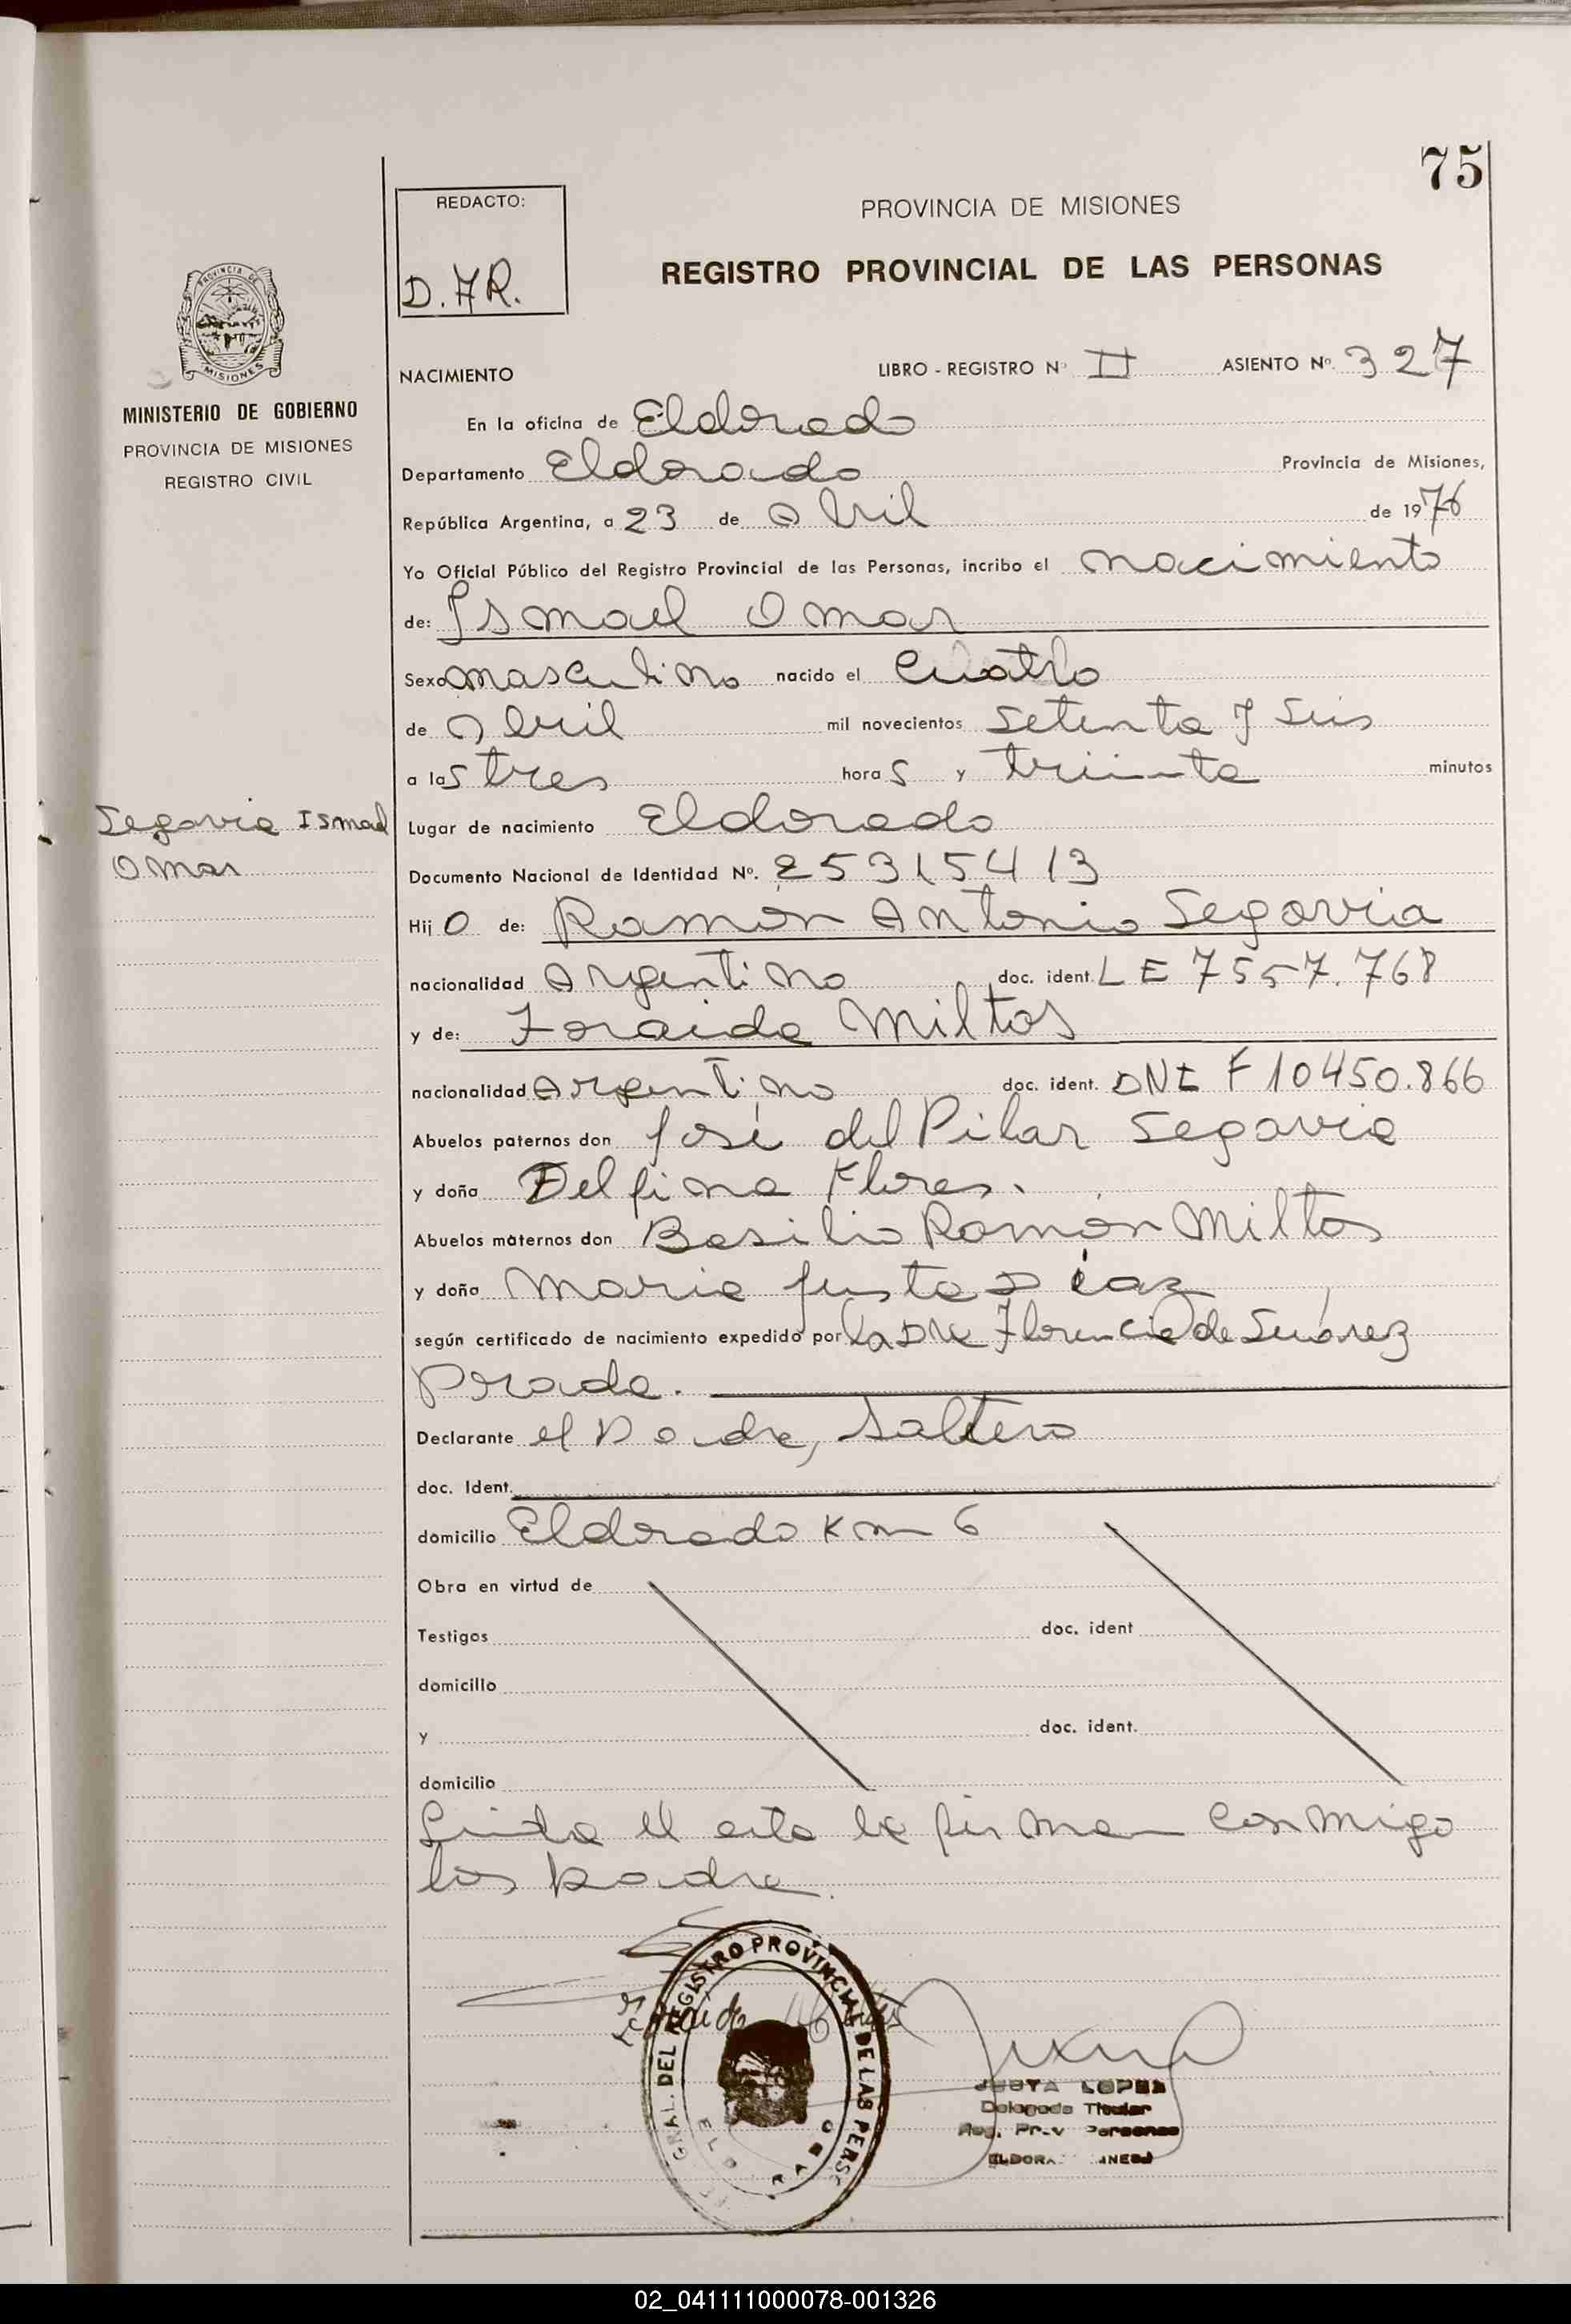 75
REDACTO:
PROVINCIA DE MISIONES
REGISTRO PROVINCIAL DE LAS PERSONAS
D.
PROVINCIA DE
MISIONES
MINISTERIO DE GOBIERNO
PROVINCIA DE MISIONES
REGISTRO CIVIL
NACIMIENTO LIBRO - REGISTRO Nº II ASIENTO Nº. 327
En la oficina de Eldorado
Departamento Eldorado Provincia de Misiones,
República Argentina, a 23 de Abril de 1976
Yo Oficial Público del Registro Provincial de las Personas, incribo el nacimiento
de: Ismael Omar
Sexo masculino nacido el Cuatro
de Abril mil novecientos Setenta y Seis
a las tres horas y treinta minutos
Segovia Ismael
Omar
Lugar de nacimiento Eldorado
Documento Nacional de Identidad Nº. 25315413
Hijo de: Ramón Antonio Segovia
nacionalidad Argentino doc. ident. LE 7557.768
y de: Zoraida Miltos
nacionalidad Argentino doc. ident. DNI F 10450.866
Abuelos paternos don José del Pilar Segovia
y doña Delfina Flores.
Abuelos maternos don Basilio Ramón Miltos
y doña Maria Justa Diaz
según certificado de nacimiento expedido por la Florencia de Suárez
Prada.
Declarante el Padre, Soltero
doc. Ident.
domicilio Eldorado Km 6
Obra en virtud de
Testigos doc. ident
domicilio
y doc. ident.
domicilio
Leida el acta la firman conmigo
los padre.
GRAL. DEL REGISTRO PROVINCIAL DE LAS PERS
Zoraida Miltos
JUSTA LOPEZ
Delegada Titular
Reg. Prov Personas
02_041111000078-001326